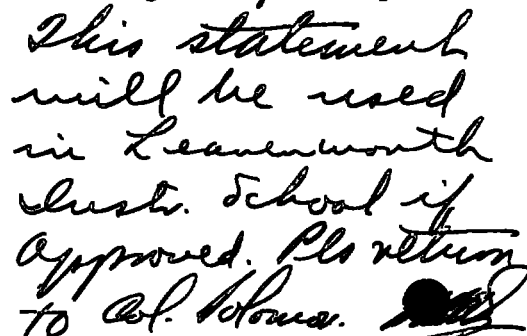 This statement
will be used
in Leavenworth
Instr. School if
approved. Pls return
to Col.